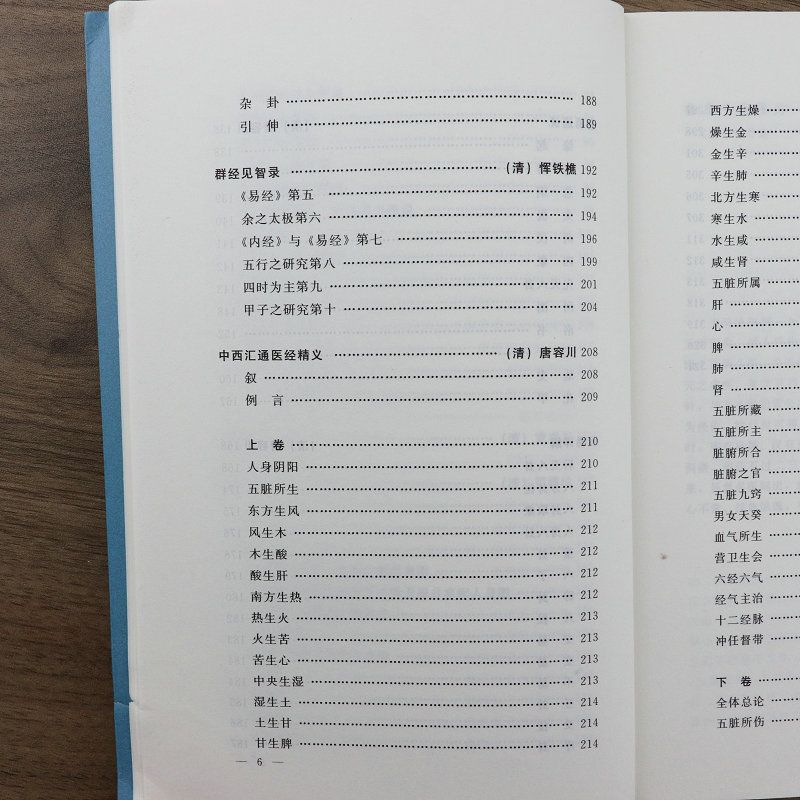 杂 卦 …… 188
引 伸 …… 189
群经见智录 …… （清）恽铁樵 192
《易经》第五 …… 192
余之太极第六 …… 194
《内经》与《易经》第七 …… 196
五行之研究第八 …… 199
四时为主第九 …… 201
甲子之研究第十 …… 204
中西汇通医经精义 …… （清）唐容川 208
叙 …… 208
例 言 …… 209
上 卷 …… 210
人身阴阳 …… 210
五脏所生 …… 211
东方生风 …… 211
风生木 …… 212
木生酸 …… 212
酸生肝 …… 212
南方生热 …… 212
热生火 …… 213
火生苦 …… 213
苦生心 …… 213
中央生湿 …… 213
湿生土 …… 214
土生甘 …… 214
甘生脾 …… 214
— 6 —
西方生燥
燥生金
金生辛
辛生肺
北方生寒
寒生水
水生咸
咸生肾
五脏所属
肝
心
脾
肺
肾
五脏所藏
五脏所主
脏腑所合
脏腑之官
五脏九窍
男女天癸
血气所生
营卫生会
六经六气
经气主治
十二经脉
冲任督带
下 卷
全体总论
五脏所伤